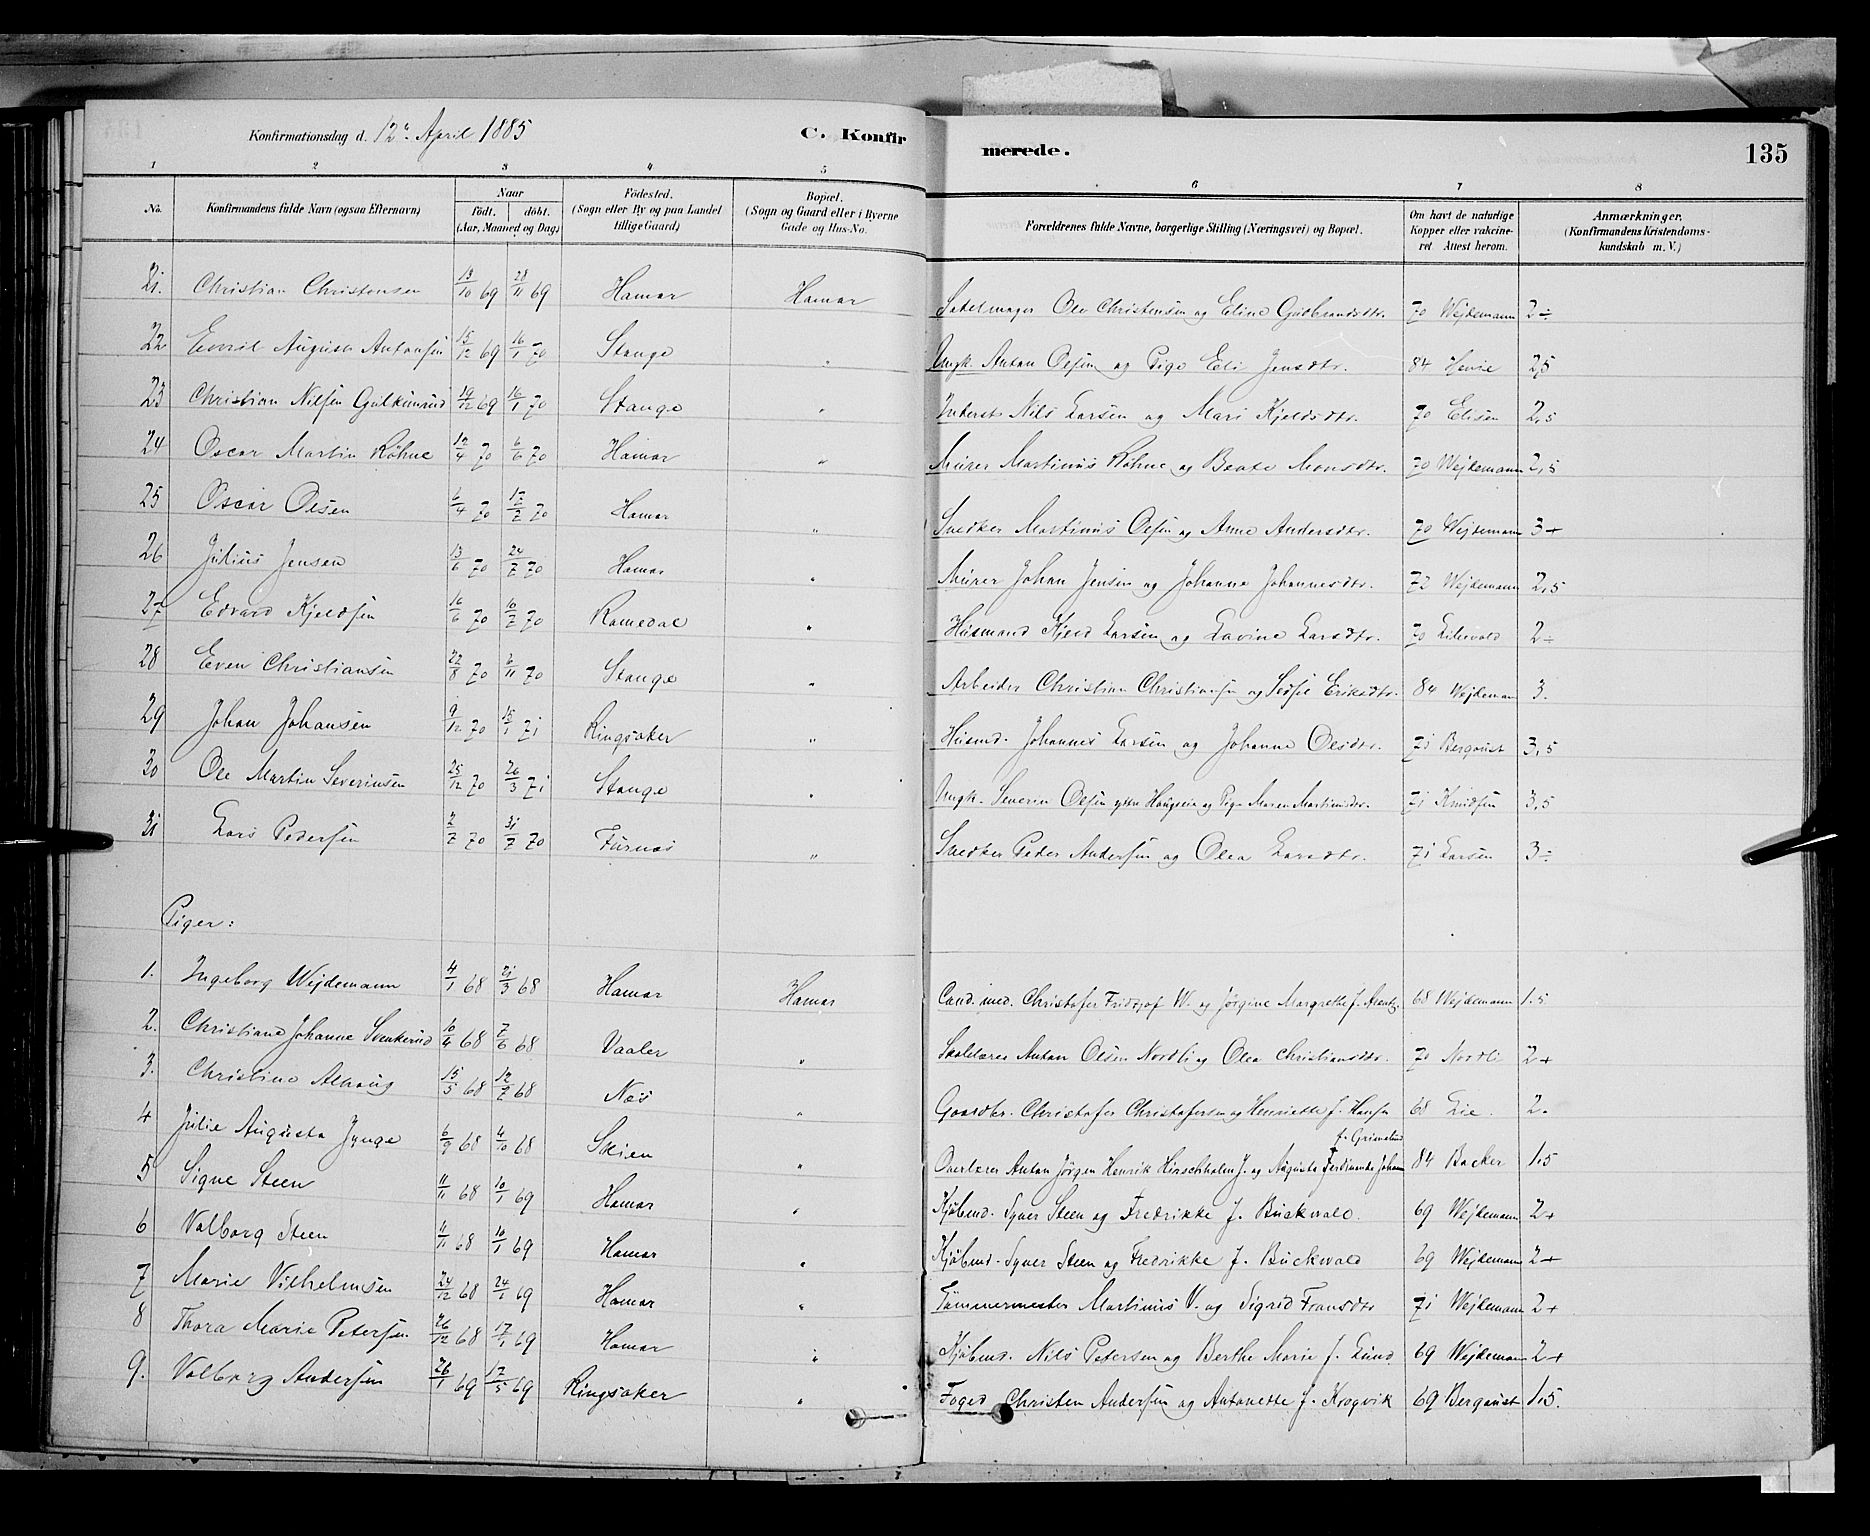 Konfirmationsdag d. 12te April 1885 C. Konfirmerede. 135
1 2 3 4 5 6 7 8
No. Konfirmandens fulde Navn (ogsaa Efternavn) Naar födt. döbt. (Aar, Maaned og Dag) Födested. (Sogn eller By og paa Landet tillige Gaard) Bopæl. (Sogn og Gaard eller i Byerne Gade og Hus-No. Forældrenes fulde Navne, borgerlige Stilling (Næringsvei) og Bopæl. Om havt de naturlige Kopper eller vakcineret Attest herom. Anmærkninger. (Konfirmandens Kristendomskundskab m. V.)
21. Christian Christensen 13/10 69 28/11 69 Hamar Hamar Sadelmager Ole Christensen og Eline Gulbrandsdtr. 70 Wejdemann 2÷
22 August Antonsen 15/12 69 16/1 70 Stange " Ungk. Anton Olsen og Pige Eli Jensdtr. 84 2,5
23 Christian Nilsen 14/12 69 16/1 70 Stange " Inderst Nils Larsen og Mari Kjeldsdtr. 70 Elisen 2,5
24 Oscar Martin Röhne 12/4 70 6/6 70 Hamar " Murer Martinus Röhne og Beate Monsdtr. 70 Wejdemann 2,5
25 Oscar Olsen 6/4 70 17/7 70 Hamar " Snedker Martinus Olsen og Anne Andersdtr. 70 Wejdemann 3+
26 Julius Jensen 13/6 70 24/7 70 Hamar " Murer Johan Jensen og Johanne Johannesdtr. 72 Wejdemann 2,5
27 Edvard Kjeldsen 16/6 70 10/7 70 Romedal " Husmand Kjeld Larsen og Lavine Larsdtr. 70 2÷
28 Even Christiansen 22/8 70 6/11 70 Stange " Arbeider Christian Christiansen og Sofie Eriksdtr. 84 Wejdeman 3.
29 Johan Johansen 9/12 70 15/1 71 Ringsaker " Husmd. Johannes Larsen og Johanne Olsdtr. 71 Bergquist 3,5
30 Ole Martin Severinsen 25/12 70 26/3 71 Stange " Ungk. Severin Olsen ytre Haugeie og Pige Maren Martinsdtr. 71 Knudsen 3,5
31 Lars Pedersen 2/7 70 31/7 70 Furnæs " Snedker Peder Andersen og Olea Larsdtr. 71 Larsen 3÷
Piger:
1. Ingeborg Wejdemann 4/1 68 21/3 68 Hamar Hamar Cand. med. Christofer Fridtjof W. og Jörgine Margrethe f. 68 Wejdemann 1.5
2. Christiane Johanne Svenkerud 10/4 68 7/6 68 Vaaler " Skolelærer Anton Olsen Nordli og Olea Christiansdtr. 70 Nordli 2+
3. Christine Alhaug 15/5 68 12/7 68 Næs " Gaardbr. Christofer Christofersen og Henriette f. Hansen 68 Lie. 2.
4 Julie Augusta Jynge 6/9 68 4/10 68 Skien " Overlærer Anton Jörgen Henrik Hirschholm J. og Augusta Ferdinande Johanne f. Grimelund 84 Backer 1.5
5 Signe Steen 11/11 68 10/1 69 Hamar " Kjøbmd. Syver Steen og Fredrikke f. Buckwald. 69 Wejdemann 2+
6 Valborg Steen 11/11 68 10/1 69 Hamar " Kjøbmd. Syver Steen og Fredrikke f. Buckwald 69 Wejdemann 2+
7 Marie Vilhelmsen 24/12 68 24/1 69 Hamar " Tømmermester Martinus V. og Sigrid Fransdtr 71 Wejdemann 2+
8 Thora Marie Petersen 26/12 68 17/1 69 Hamar " Kjøbmd. Nils Petersen og Berthe Marie f. Lund 69 Wejdemann 2+
9. Valborg Andersen 26/1 69 17/5 69 Ringsaker " Foged Christen Andersen og Antonette f. Krogvik 69 Bergquist 1.5.